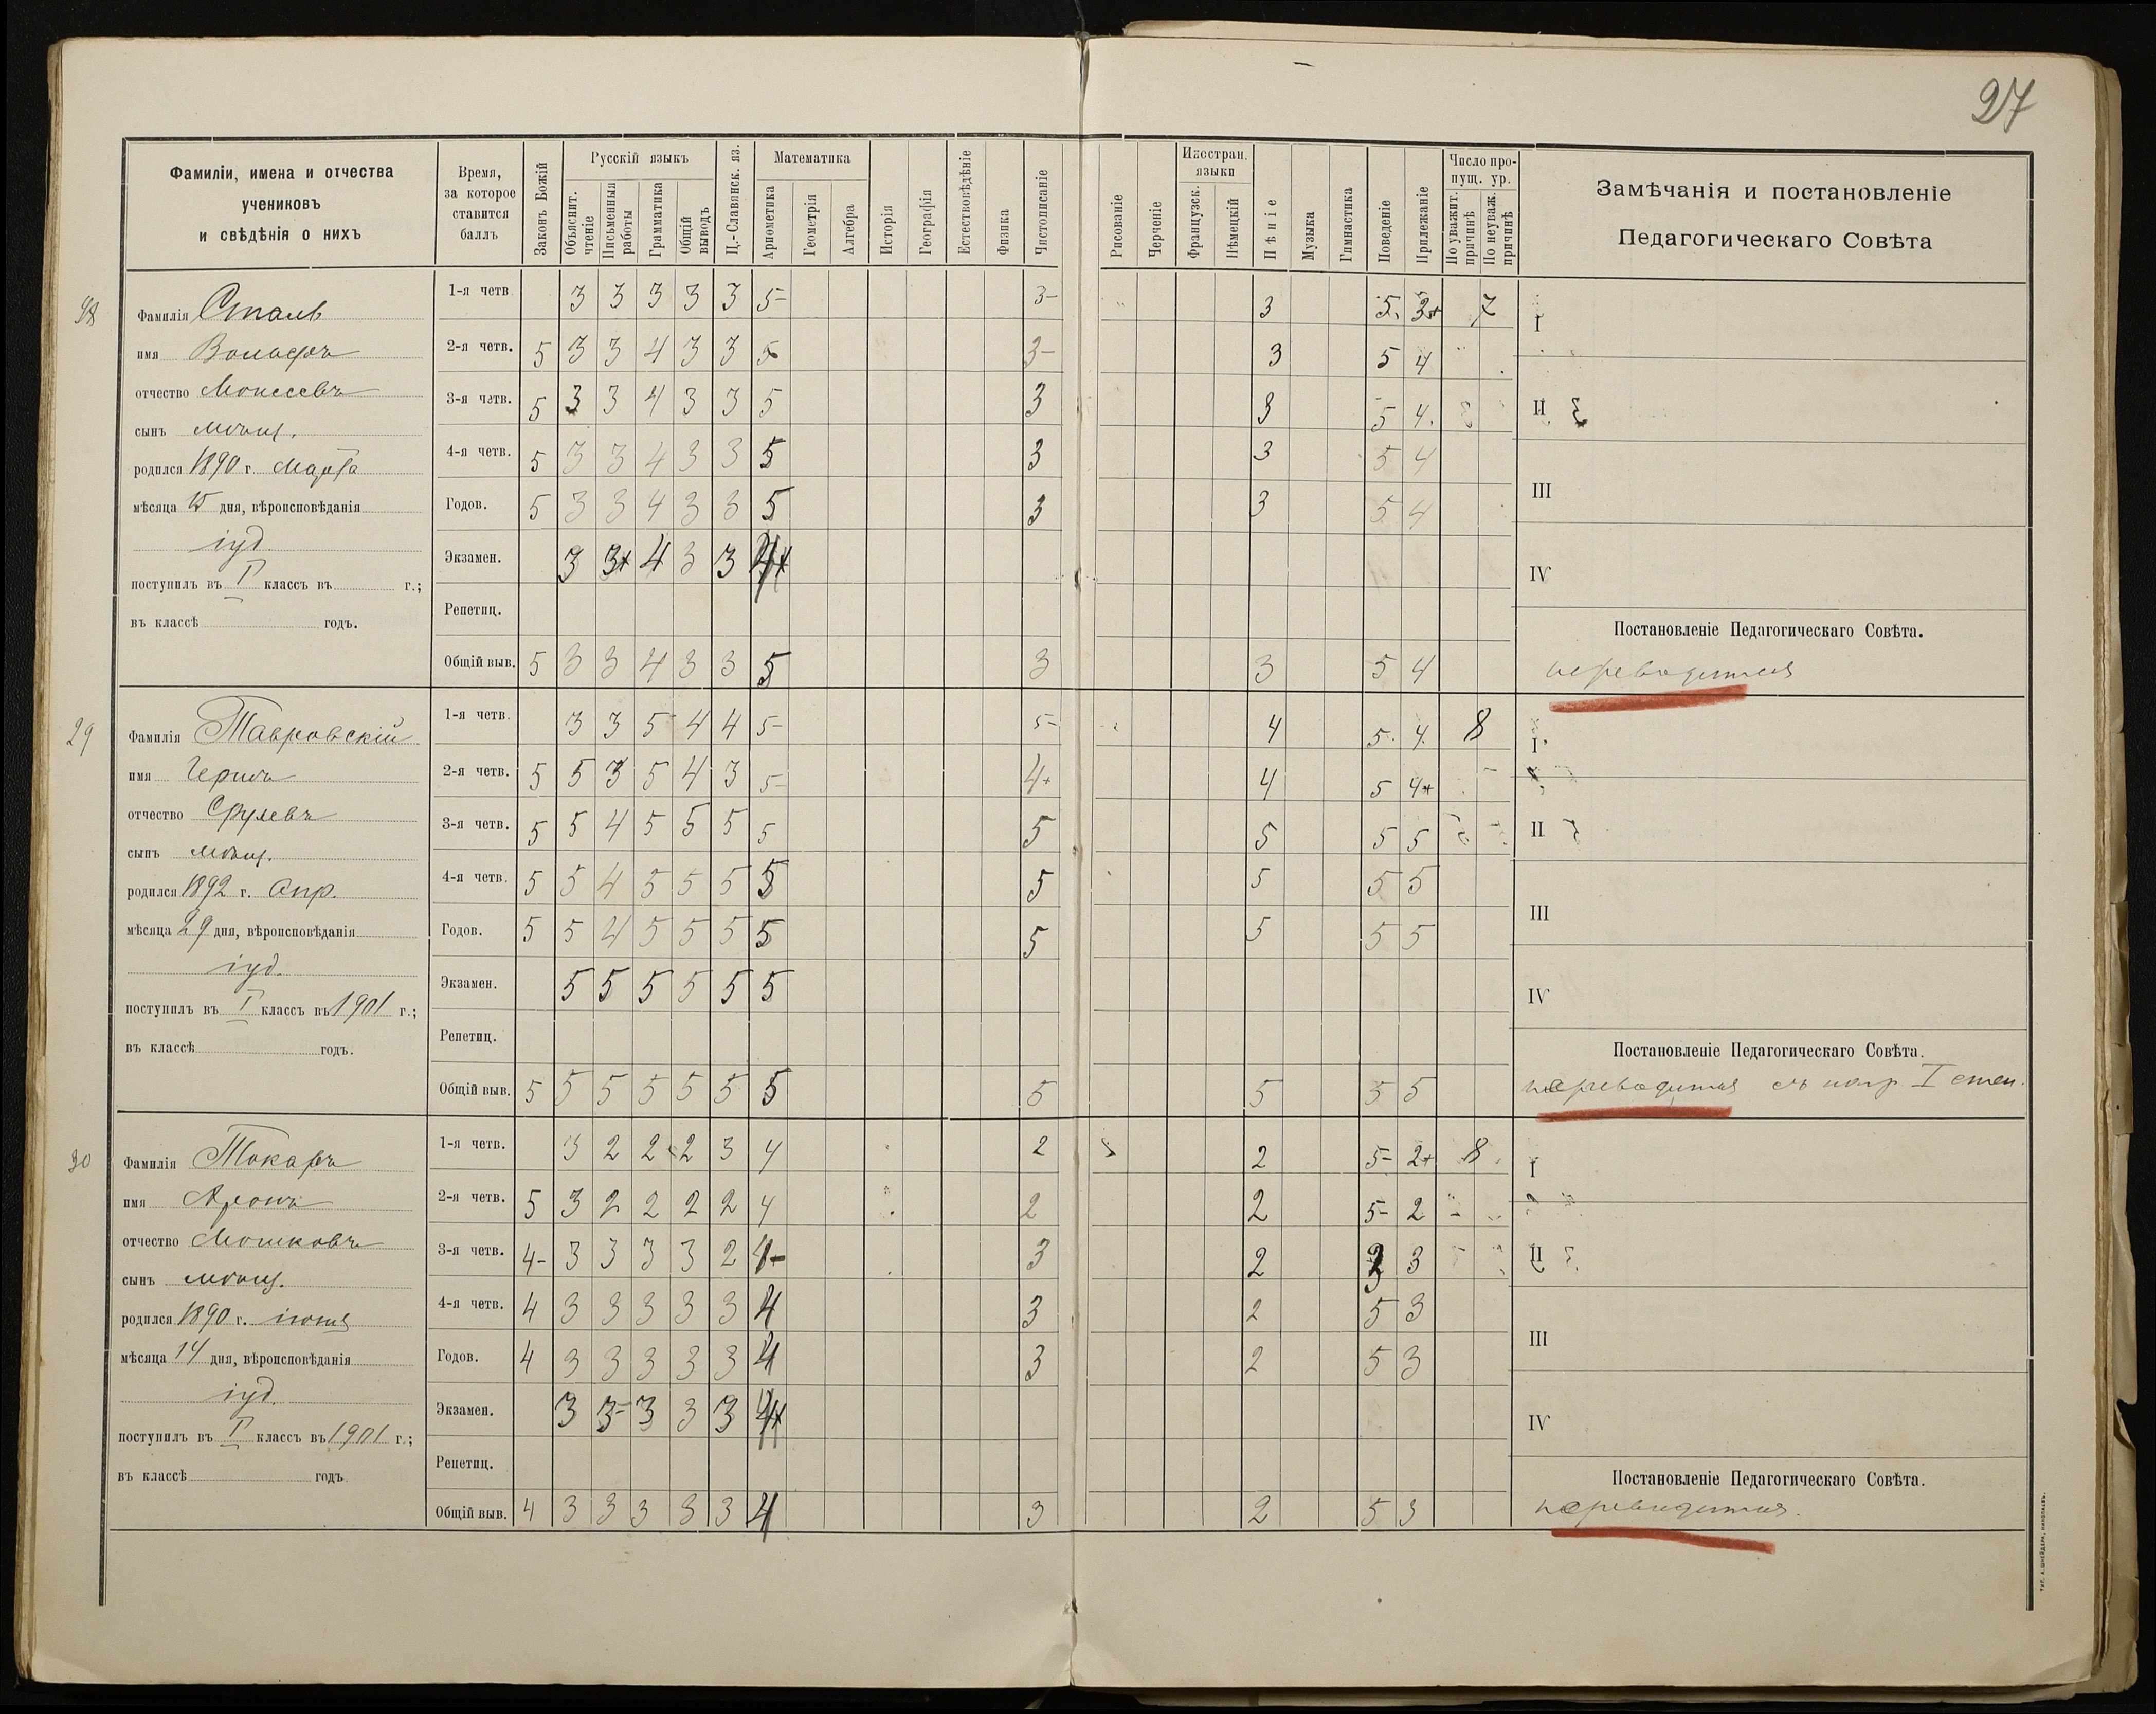 27
Фамиліи, имена и отчества
учениковъ
и свѣдѣнія о нихъ
Время,
за которое
ставится
баллъ
Законъ Божій
Русскій языкъ
Объяснит. чтеніе
Письменныя работы
Грамматика
Общій выводъ
Ц.-Славянск. яз.
Математика
Ариѳметика
Геометрія
Алгебра
Исторія
Географія
Естествовѣдѣніе
Физика
Чистописаніе
Рисованіе
Черченіе
Иностран. языки
Французск.
Нѣмецкій
Пѣніе
Музыка
Гимнастика
Поведеніе
Прилежаніе
Число пропущ. ур.
По уважит. причинѣ
По неуваж. причинѣ
Замѣчанія и постановленіе
Педагогическаго Совѣта
Фамилія Сталь
имя
отчество Моисеевъ
сынъ мѣщ.
родился 1890 г. Марта
мѣсяца 15 дня, вѣроисповѣданія
іуд.
поступилъ въ I классъ въ г.;
въ классѣ годъ.
1-я четв. 3 3 3 3 3 5- 3- 3 5. 3+ 7 I
2-я четв. 5 3 3 4 3 3 5 3- 3 5 4
3-я четв. 5 3 3 4 3 3 5 3 3 5 4. II
4-я четв. 5 3 3 4 3 3 5 3 3 5 4
Годов. 5 3 3 4 3 3 5 3 3 5 4 III
Экзамен. 3 3+ 4 3 3 4+ IV
Репетиц.
Постановленіе Педагогическаго Совѣта.
Общій выв. 5 3 3 4 3 3 5 3 3 5 4 переводится
29
Фамилія Тавровскій
имя Герцъ
отчество Срулевъ
сынъ мѣщ.
родился 1892 г. Апр.
мѣсяца 29 дня, вѣроисповѣданія
іуд.
поступилъ въ I классъ въ 1901 г.;
въ классѣ годъ.
1-я четв. 3 3 5 4 4 5- 5- 4 5. 4. 8 I
2-я четв. 5 5 3 5 4 3 5- 4+ 4 5 4+
3-я четв. 5 5 4 5 5 5 5 5 5 5 5 II
4-я четв. 5 5 4 5 5 5 5 5 5 5 5
Годов. 5 5 4 5 5 5 5 5 5 5 5 III
Экзамен. 5 5 5 5 5 5 IV
Репетиц.
Постановленіе Педагогическаго Совѣта.
Общій выв. 5 5 5 5 5 5 5 5 5 5 5 переводится съ нагр. I степ.
30
Фамилія Токарь
имя Аронъ
отчество Мошковъ
сынъ мѣщ.
родился 1890 г. іюня
мѣсяца 14 дня, вѣроисповѣданія
іуд.
поступилъ въ I классъ въ 1901 г.;
въ классѣ годъ
1-я четв. 3 2 2 2 3 4 2 2 5- 2+ 8 I
2-я четв. 5 3 2 2 2 2 4 2 2 5- 2
3-я четв. 4- 3 3 3 3 2 4- 3 2 3 II
4-я четв. 4 3 3 3 3 3 4 3 2 5 3
Годов. 4 3 3 3 3 3 4 3 2 5 3 III
Экзамен. 3 3- 3 3 3 4+ IV
Репетиц.
Постановленіе Педагогическаго Совѣта.
Общій выв. 4 3 3 3 3 3 4 3 2 5 3 переводится.
ТИП. А. ШНЕЙДЕРА, НИКОЛАЕВЪ.